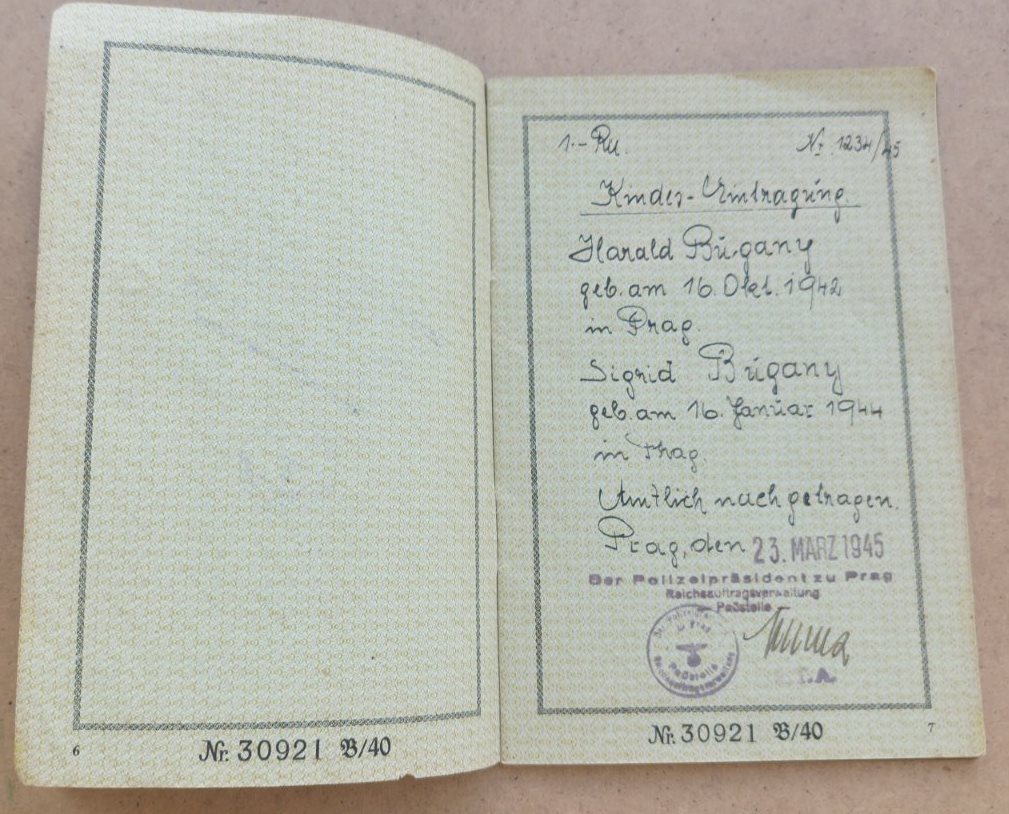 6
Nr. 30921 B/40
1.- Ru.
Nr. 1234/45
Kinder-Eintragung.
Harald Bugany
geb. am 16. Okt. 1942
in Prag.
Sigrid Bugany
geb. am 16. Januar 1944
in Prag.
Amtlich nachgetragen.
Prag, den 23. MÄRZ 1945
Der Polizeipräsident zu Prag
Reichsauftragsverwaltung
Paßstelle
in Prag
Paßstelle
Reichsauftragsverwaltung
Nr. 30921 B/40
7